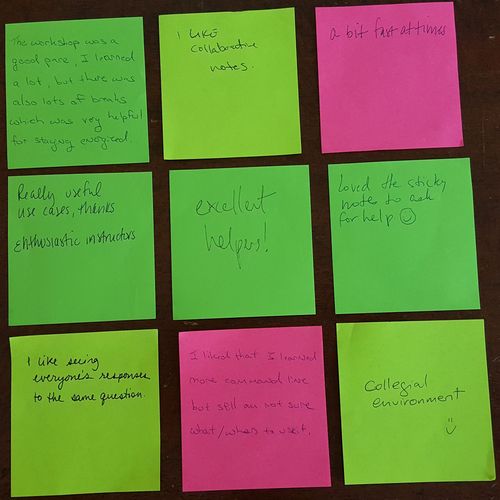 The workshop was a
good pace, I learned
a lot, but there was
also lots of breaks
which was very helpful
for staying energized.
I LIKE
collaborative
notes.
a bit fast at times
Really useful
use cases, thanks
Enthusiastic instructors
excellent
helpers!
Loved the sticky
notes to ask
for help ☺
I like seeing
everyone's responses
to the same question.
I liked that I learned
more command line
but still am not sure
what/when to use it.
Collegial
environment